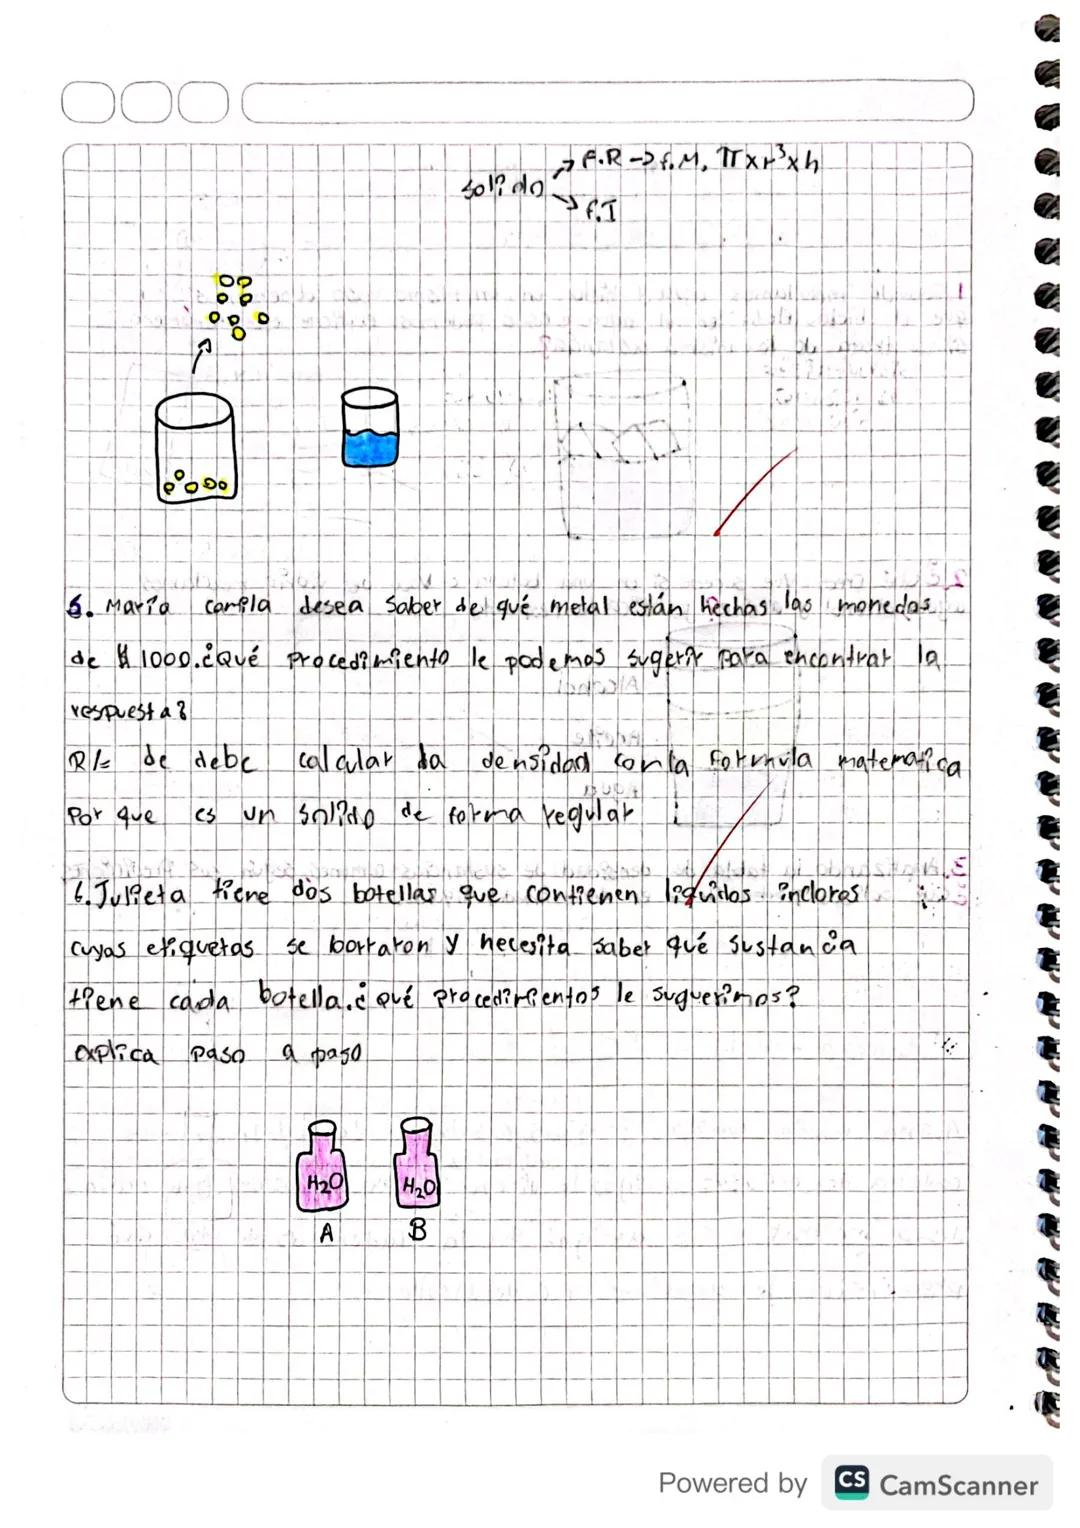 F.R -> f.M, π x r³ x h
solido
f.I
5. María camila desea saber de qué metal están hechas las monedas
de $ 1000.¿Qué procedimiento le podemos sugerir para encontrar la
respuesta?
R/= de debe calcular da densidad con la formula matematica
Por que es un solido de forma regular
6. Julieta tiene dos botellas que contienen liquidos incloros
cuyas etiquetas se borraron y necesita saber qué sustancia
tiene cada botella.¿qué procedimientos le suguerimos?
explica paso a paso
H₂O H₂O
A B
Powered by CS CamScanner